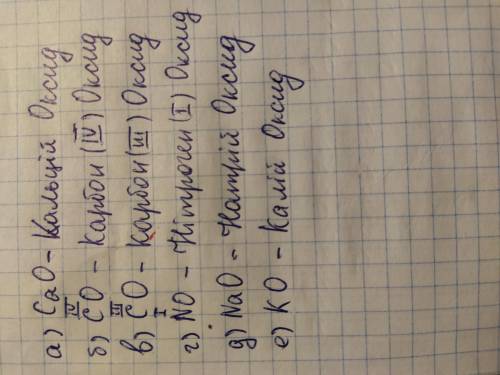 а) CaO - Кальцій Оксид
б) IV CO - Карбон (IV) Оксид
в) III CO - Карбон (III) Оксид
г) I NO - Нітроген (I) Оксид
д) NaO - Натрій Оксид
е) KO - Калій Оксид